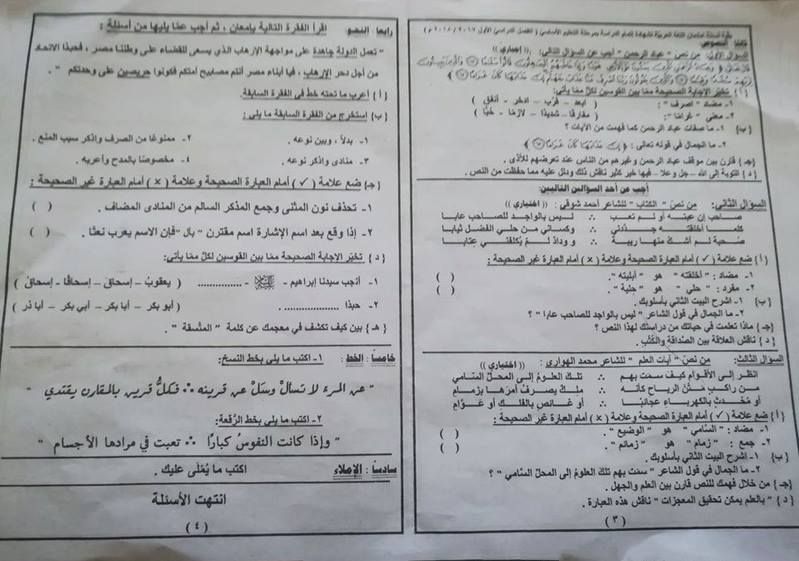 بقية أسئلة امتحان اللغة العربية لشهادة إتمام الدراسة بمرحلة التعليم الأساسي ( الفصل الدراسي الأول ٢٠١٧ / ٢٠١٨ م )
ثالثا النصوص
السؤال الأول: من نص " عباد الرحمن " أجب عن السؤال التالي: (( إجباري ))
{أ} تخيّر الإجابة الصحيحة ممّا بين القوسين لكلّ ممّا يأتي:
١- مضاد " اصرف " : ( أبعد – قرّب – ادخر – أنفق )
٢- معنى " غرامًا ": ( مفارقًا – شديدًا – لازمًا – حُبًّا )
{ب} ١- ما صفات عباد الرحمن كما فهمت من الآيات ؟
٢- ما الجمال في قوله تعالى: ﴿ إن عذابها كان غراما ﴾
{جـ} قارن بين موقف عباد الرحمن وغيرهم من الناس عند تعرضهم للأذى.
{د} التوبة إلى الله – جل وعلا – فيها خير كثير ناقش ذلك ودلل عليه مما حفظت من النص.
أجب عن أحد السؤالين التاليين:
السؤال الثاني: من نص " الكتاب " للشاعر أحمد شوقي . (( اختياري ))
صاحب إن عبته أو لم تعب ∴ ليس بالواجد للصاحب عابا
كلما أخلقته جددني ∴ وكساني من حلي الفضل ثيابا
صحبة لم أشك منها ريبة ∴ ووداد لم يكلفني عتابا
{أ} ضع علامة ( ✓ ) أمام العبارة الصحيحة وعلامة ( × ) أمام العبارة غير الصحيحة :
١- مضاد : " أخلقته " هو " أبليته ". ( )
٢- مفرد : " حلي " هو " حلية ". ( )
{ب} ١- اشرح البيت الثاني بأسلوبك.
٢- ما الجمال في قول الشاعر " ليس بالواجد للصاحب عابا " ؟
{جـ} ماذا تعلمت في حياتك من دراستك لهذا النص ؟
{د} ناقش العلاقة بين الصداقة والكتب.
السؤال الثالث: من نص " آيات العلم " للشاعر محمد الهواري : (( اختياري ))
انظر إلى الأقوام كيف سمت بهم ∴ تلك العلوم إلى المحل السامي
من راكب متن الرياح كأنه ∴ ملك يصرف أمرها بزمام
أو محدث بالكهرباء عجائبا ∴ أو غائص بالفلك أو عوام
{أ} ضع علامة ( ✓ ) أمام العبارة الصحيحة وعلامة ( × ) أمام العبارة غير الصحيحة :
١- مضاد : " السامي " هو " الوضيع ". ( )
٢- جمع : " زمام " هو " زمائم ". ( )
{ب} ١- اشرح البيت الثاني بأسلوبك.
٢- ما الجمال في قول الشاعر " سمت بهم تلك العلوم إلى المحل السامي " ؟
{جـ} من خلال فهمك للنص قارن بين العلم والجهل.
{د} " بالعلم يمكن تحقيق المعجزات " ناقش هذه العبارة.
( ٣ )
رابعا النحو اقرأ الفقرة التالية بإمعان ، ثم أجب عمّا يليها من أسئلة :
" تعمل الدولة جاهدة على مواجهة الإرهاب الذي يسعى للقضاء على وطننا مصر ، فحبذا الاتحاد
من أجل دحر الإرهاب، فيا أبناء مصر أنتم مصابيح أمتكم فكونوا حريصين على وحدتكم " .
{ أ } أعرب ما تحته خط في الفقرة السابقة.
{ب} استخرج من الفقرة السابقة ما يلي :
١- بدلاً ، وبين نوعه . ٢- ممنوعًا من الصرف واذكر سبب المنع .
٣- منادى واذكر نوعه . ٤- مخصوصًا بالمدح وأعربه .
{جـ} ضع علامة ( ✓ ) أمام العبارة الصحيحة وعلامة ( × ) أمام العبارة غير الصحيحة :
١- تحذف نون المثنى وجمع المذكر السالم من المنادى المضاف . ( )
٢- إذا وقع بعد اسم الإشارة اسم مقترن " بال " فإن الاسم يعرب نعتًا . ( )
{ د } تخيّر الإجابة الصحيحة ممّا بين القوسين لكلّ ممّا يأتي:
١- أنجب سيدنا إبراهيم - ﷺ - .............. ( يعقوبُ – إسحاق – إسحاقًا – إسحاقُ )
٢- حبذا .................. ( أبو بكر – أبا بكر – أبي بكر – أبا ذر )
{ هـ } بين كيف تكشف في معجمك عن كلمة " المتّسقة " .
خامسًا : الخط : ١- اكتب ما يلي بخط النسخ:
" عن المرء لا تسأل وسل عن قرينه ∴ فكل قرين بالمقارن يقتدي "
٢- اكتب ما يلي بخط الرقعة:
" وإذا كانت النفوس كبارًا ∴ تعبت في مرادها الأجسام "
سادسًا : الإملاء اكتب ما يُملى عليك .
انتهت الأسئلة
( ٤ )